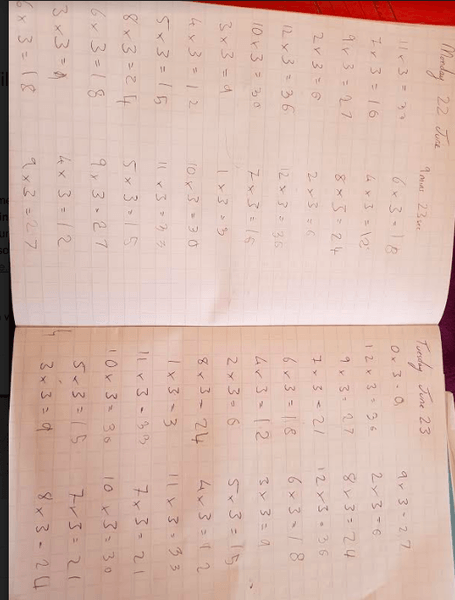 Monday 22 June 9 mins 23 sec
11 x 3 = 33 6 x 3 = 18
7 x 3 = 16 4 x 3 = 12
9 x 3 = 27 8 x 3 = 24
2 x 3 = 6 2 x 3 = 6
12 x 3 = 36 12 x 3 = 36
10 x 3 = 30 7 x 3 = 15
3 x 3 = 9 1 x 3 = 3
4 x 3 = 12 10 x 3 = 30
5 x 3 = 15 11 x 3 = 33
8 x 3 = 24 5 x 3 = 15
6 x 3 = 18 9 x 3 = 27
3 x 3 = 9 4 x 3 = 12
6 x 3 = 18 9 x 3 = 27
Tuesday June 23
0 x 3 = 0 9 x 3 = 27
12 x 3 = 36 2 x 3 = 6
9 x 3 = 27 8 x 3 = 24
7 x 3 = 21 12 x 3 = 36
6 x 3 = 18 6 x 3 = 18
4 x 3 = 12 3 x 3 = 9
2 x 3 = 6 5 x 3 = 15
8 x 3 = 24 4 x 3 = 12
1 x 3 = 3 11 x 3 = 33
11 x 3 = 33 7 x 3 = 21
10 x 3 = 30 10 x 3 = 30
5 x 3 = 15 7 x 3 = 21
3 x 3 = 9 8 x 3 = 24